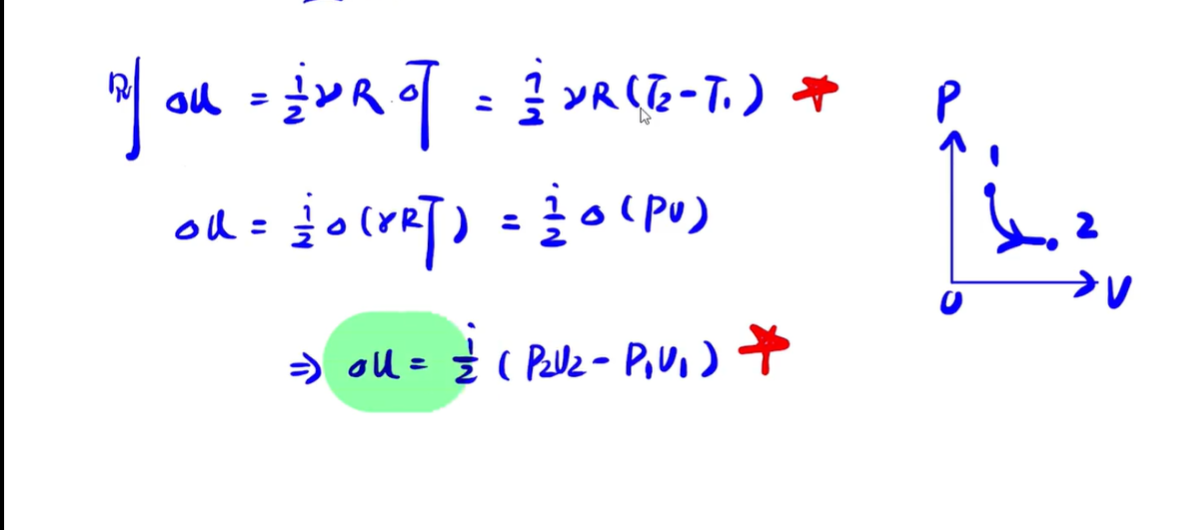 ΔU = i/2 νR ΔT = i/2 νR (T₂-T₁)
ΔU = i/2 Δ(νRT) = i/2 Δ(PV)
⇒ ΔU = i/2 (P₂V₂ - P₁V₁)
P
1
2
0
V